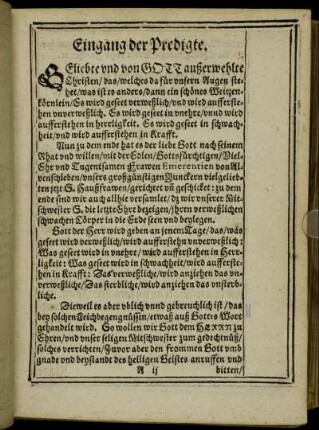 Eingang der Predigte.
GEliebte vnd von GOTT außerwehlte
Christen/ das/ welches da für vnsern Augen ste-
het/ was ist es anders/ dann ein schönes Weitzen-
körnlein/ Es wird geset verweßlich/ vnd wird aufferste-
hen vnverweßlich. Es wird geset in vnehre/ vnnd wird
aufferstehen in herrligkeit. Es wird geset in schwach-
heit/ vnd wird aufferstehen in Krafft.
Nun zu dem ende hat es der liebe Gott nach seinem
Rhat vnd willen/ mit der Edlen/ Gottsfürchtigen/ Viel-
Ehr vnd Tugentsamen Frawen Emerentien von Al-
venschleben/ vnsers großgünstigen Junckern vielgelieb-
ten jetzt S. Haußfrawen/ gerichtet vñ geschicket: zu dem
ende sind wir auch allhie versamlet/ dz wir vnserer Mit-
schwester S. die letzte Ehre bezeigen/ jhren verweßlichen
schwachen Cörper in die Erde setzen vnd beylegen.
Gott der Herr wird geben an jenem Tage/ das/ was
geset wird verweßlich/ wird aufferstehn vnverweßlich:
Was geset wird in vnehre/ wird aufferstehen in Herr-
ligkeit: Was geset wird in schwachheit/ wird aufferste-
hen in Krafft: Das verweßliche/ wird anziehen das vn-
verweßliche/ Das sterbliche/ wird anziehen das vnsterb-
liche.
Dieweil es aber vblich vnnd gebreuchlich ist/ das
bey solchen Leichbegengnüssen/ etwas auß Gottes Wort
gehandelt wird. So wollen wir Gott dem HERRN zu
Ehren/ vnd vnser seligen Mitschwester zum gedechtnüß/
solches verrichten/ Zuvor aber den frommen Gott vmb
gnade vnd beystandt des heiligen Geistes anruffen vnd
A ij bitten/